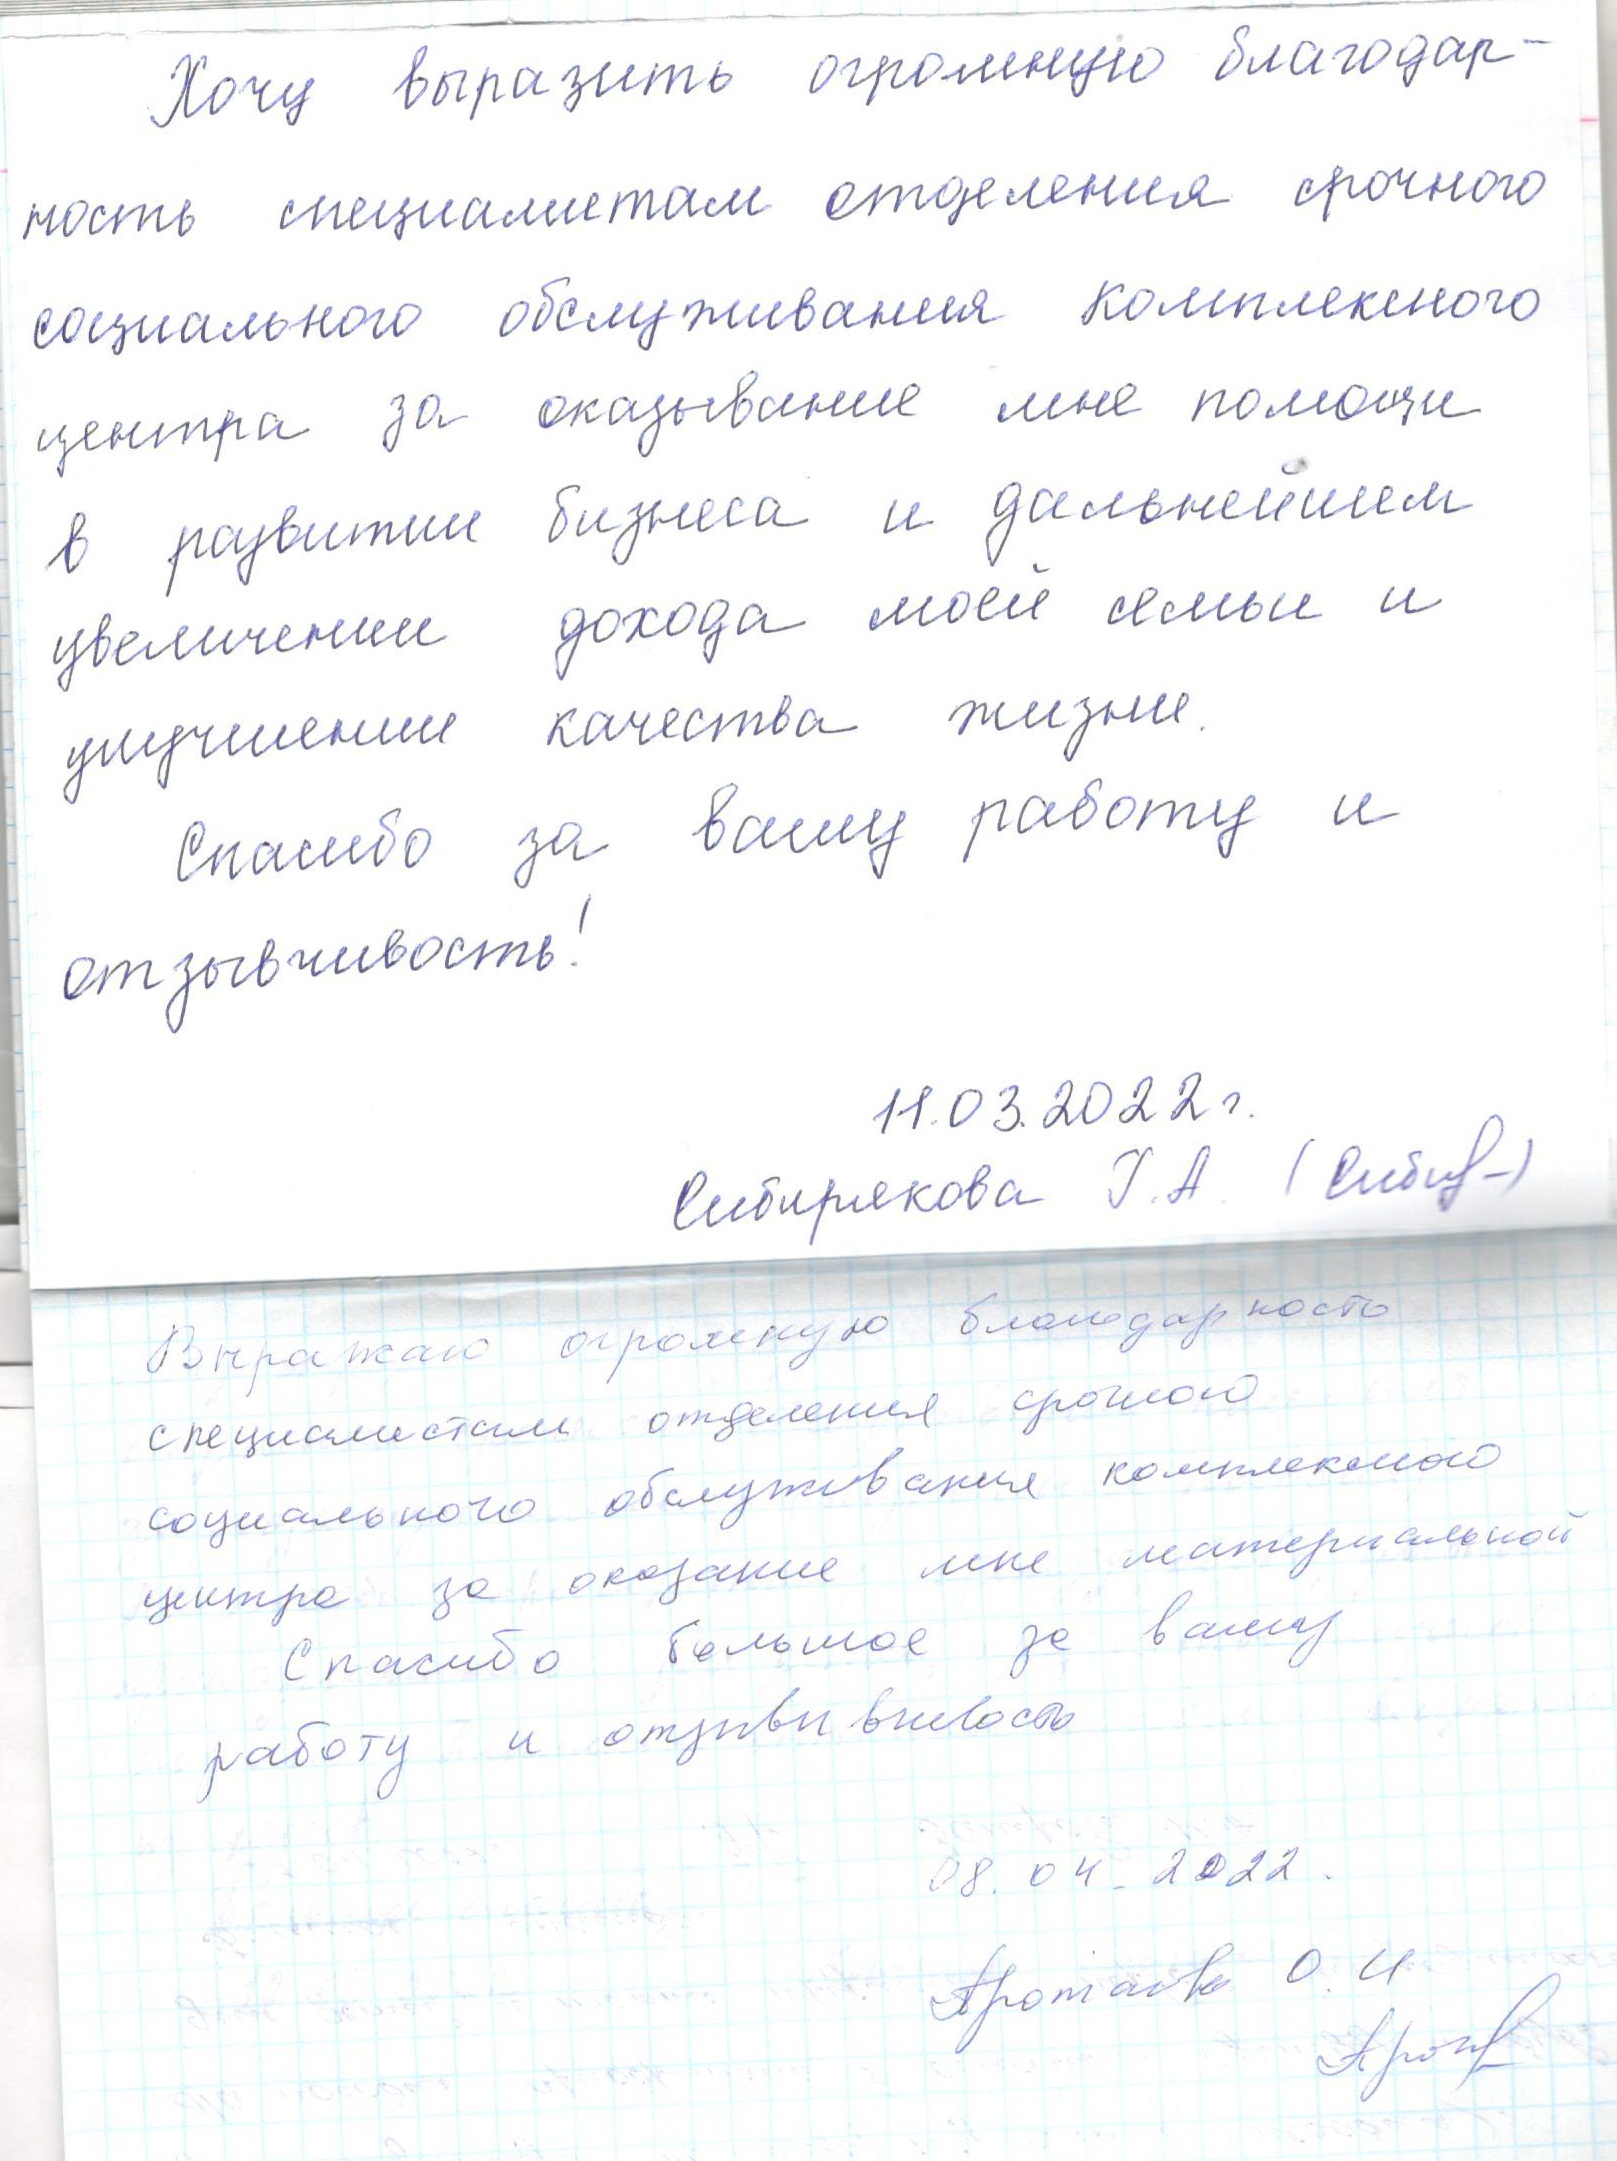 Хочу выразить огромную благодар-
ность специалистам отделения срочного
социального обслуживания Комплексного
центра за оказывание мне помощи
в развитии бизнеса и дальнейшем
увеличении дохода моей семьи и
улучшении качества жизни.
Спасибо за вашу работу и
отзывчивость!
11.03.2022 г.
Сибирякова Г.А. (Сибир-)
Выражаю огромную благодарность
специалистам отделения срочного
социального обслуживания комплексного
центра за оказание мне материальной
Спасибо большое за вашу
работу и
08.04.2022.
О.И